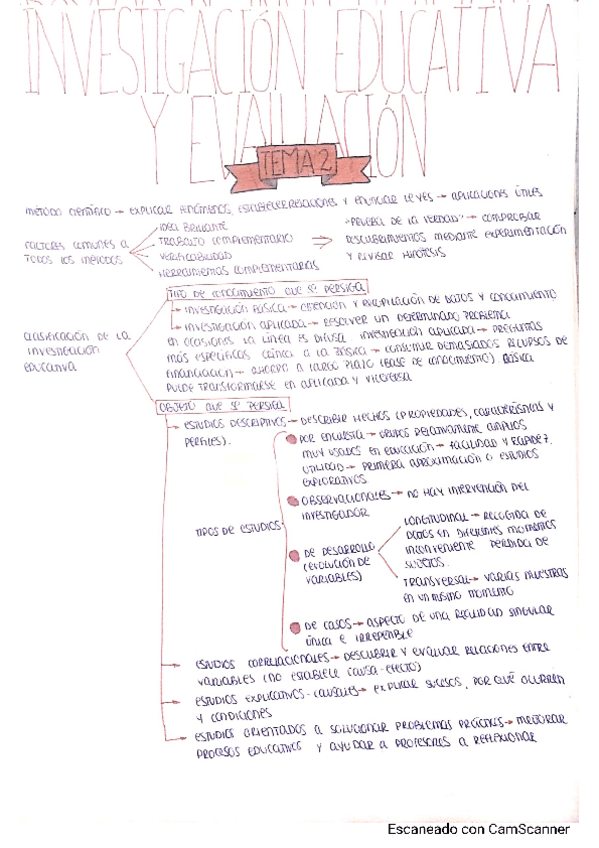 INVESTIGACIÓN EDUCATIVA
Y EVALUACIÓN
TEMA 2
MÉTODO CIENTÍFICO → EXPLICAR FENÓMENOS, ESTABLECER RELACIONES Y ENUNCIAR LEYES → APLICACIONES ÚTILES
FACTORES COMUNES A
TODOS LOS MÉTODOS
IDEA BRILLANTE
TRABAJO COMPLEMENTARIO
VERIFICABILIDAD
HERRAMIENTAS COMPLEMENTARIAS
"PRUEBA DE LA VERDAD" → COMPROBAR
DESCUBRIMIENTOS MEDIANTE EXPERIMENTACIÓN
Y REVISAR HIPÓTESIS
CLASIFICACIÓN DE LA
INVESTIGACIÓN
EDUCATIVA
TIPO DE CONOCIMIENTO QUE SE PERSIGA
INVESTIGACIÓN BÁSICA → OBTENCIÓN Y RECOPILACIÓN DE DATOS Y CONOCIMIENTO
INVESTIGACIÓN APLICADA → RESOLVER UN DETERMINADO PROBLEMA
EN OCASIONES LA LÍNEA ES DIFUSA. INVESTIGACIÓN APLICADA → PREGUNTAS
MÁS ESPECÍFICAS. CRÍTICA A LA BÁSICA → CONSUMIR DEMASIADOS RECURSOS DE
FINANCIACIÓN → AHORRO A LARGO PLAZO (BASE DE CONOCIMIENTO). BÁSICA
PUEDE TRANSFORMARSE EN APLICADA Y VICEVERSA
OBJETO QUE SE PERSIGA
ESTUDIOS DESCRIPTIVOS → DESCRIBIR HECHOS (PROPIEDADES, CARACTERÍSTICAS Y
PERFILES).
TIPOS DE ESTUDIOS
POR ENCUESTA → GRUPOS RELATIVAMENTE AMPLIOS
MUY USADOS EN EDUCACIÓN → FACILIDAD Y RAPIDEZ
UTILIDAD → PRIMERA APROXIMACIÓN O ESTUDIOS
EXPLORATIVOS
OBSERVACIONALES → NO HAY INTERVENCIÓN DEL
INVESTIGADOR
DE DESARROLLO
(EVOLUCIÓN DE
VARIABLES)
LONGITUDINAL → RECOGIDA DE
DATOS EN DIFERENTES MOMENTOS
INCONVENIENTE PERDIDA DE
SUJETOS.
TRANSVERSAL → VARIAS MUESTRAS
EN UN MISMO MOMENTO
DE CASOS → ASPECTO DE UNA REALIDAD SINGULAR
ÚNICA E IRREPETIBLE
ESTUDIOS CORRELACIONALES → DESCUBRIR Y EVALUAR RELACIONES ENTRE
VARIABLES (NO ESTABLECE CAUSA-EFECTO)
ESTUDIOS EXPLICATIVOS-CAUSALES → EXPLICAR SUCESOS, POR QUÉ OCURREN
Y CONDICIONES
ESTUDIOS ORIENTADOS A SOLUCIONAR PROBLEMAS PRÁCTICOS → MEJORAR
PROCESOS EDUCATIVOS Y AYUDAR A PROFESORES A REFLEXIONAR
Escaneado con CamScanner